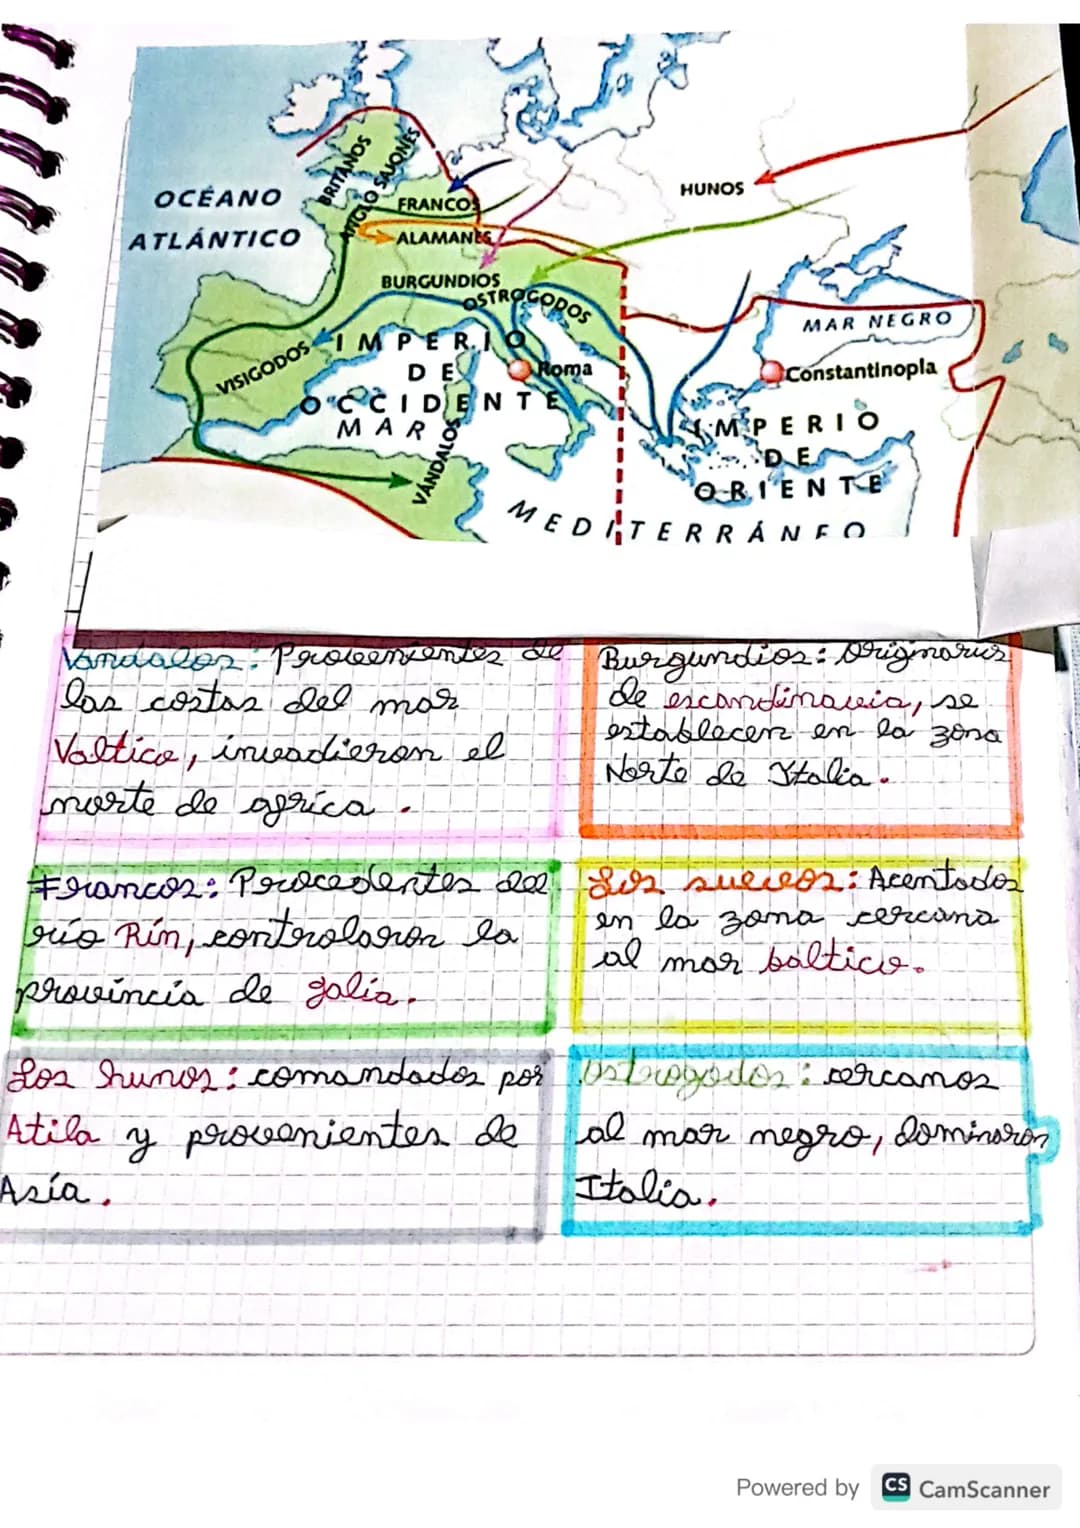 OCÉANO
ATLÁNTICO
BRITANOS
ANGLO SAJONES
FRANCOS
ALAMANES
BURGUNDIOS
OSTROGODOS
VISIGODOS
VÁNDALOS
HUNOS
IMPERIO
DE
OCCIDENTE
Roma
MAR
MEDITERRÁNEO
MAR NEGRO
Constantinopla
IMPERIO
DE
ORIENTE
Vandalos: Provenientes de
las costas del mar
Valtico, invadieron el
norte de africa.
Burgundios: Originarios
de escandinavia, se
establecen en la zona
Norte de Italia.
Francos: Procedentes del
río Rín, controlaron la
provincia de galia.
Los suevos: Acentados
en la zona cercana
al mar báltico.
Los hunos: comandados por
Atila y provenientes de
Asía.
Ostrogodos: cercanos
al mar negro, dominaron
Italia.
Powered by CS CamScanner